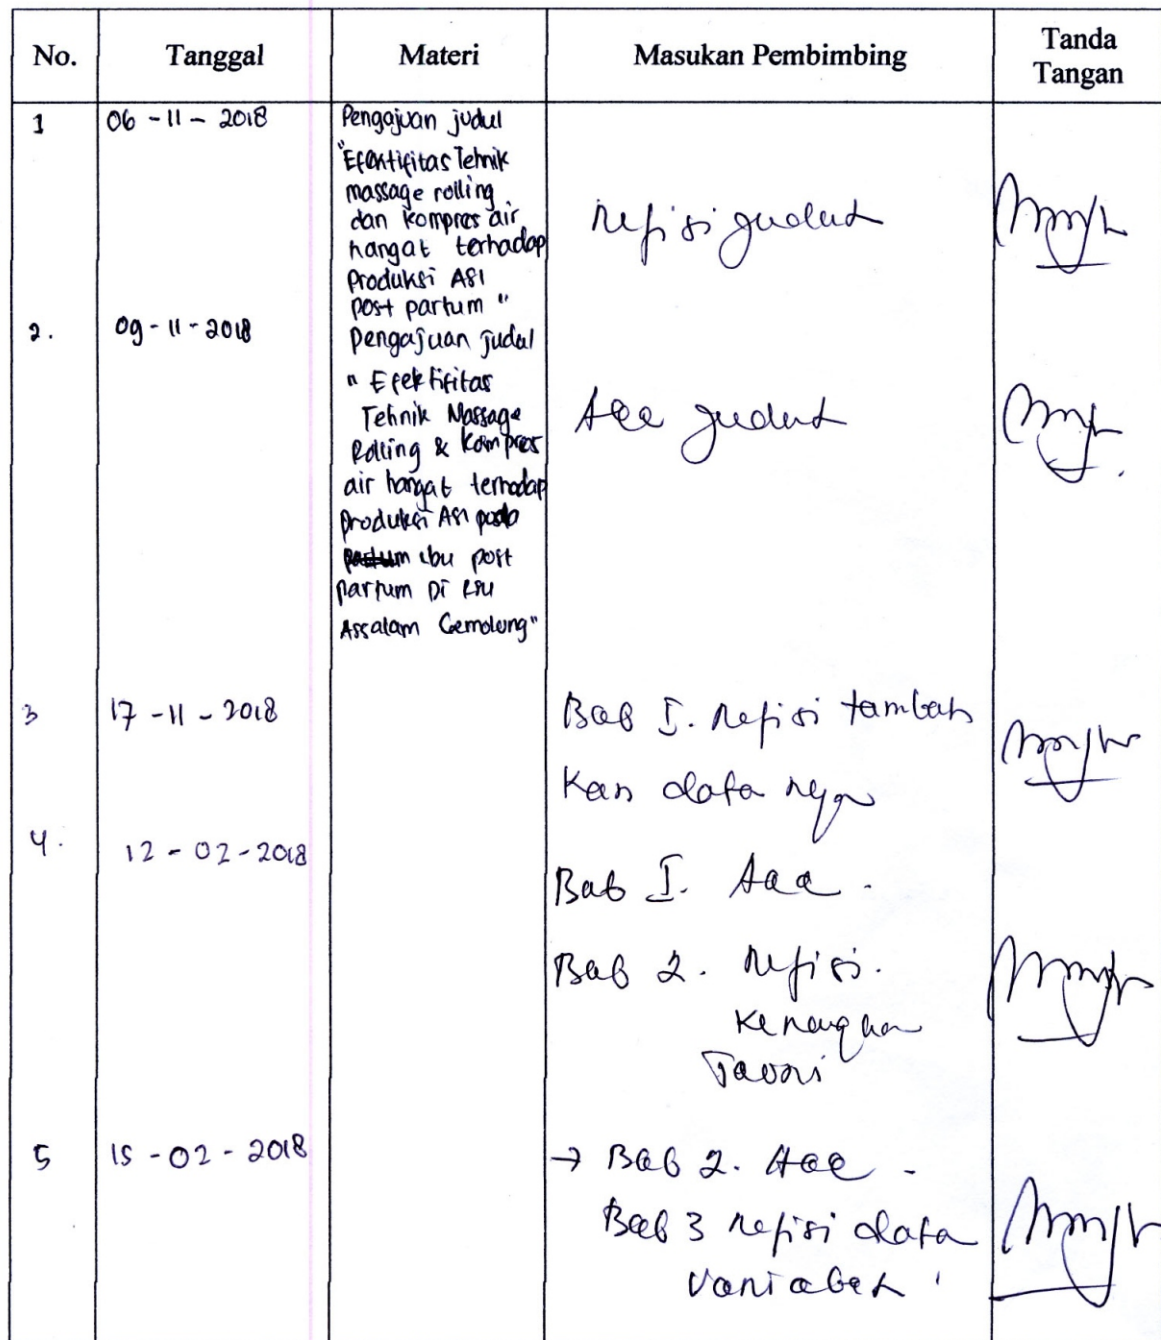 No. Tanggal Materi Masukan Pembimbing Tanda
Tangan
1 06 - 11 - 2018 Pengajuan judul
"Efektifitas Tehnik
massage rolling
dan kompres air
hangat terhadap
Produksi ASI
post partum"
refisi judul
2. 09 - 11 - 2018 Pengajuan judul
" Efektifitas
Tehnik Massage
Rolling & Kompres
air hangat terhadap
produksi ASI pada
ibu post
partum Di RSU
Assalam Gemolong"
Acc judul
3 17 - 11 - 2018 Bab I. refisi tambah
kan data
4. 12 - 02 - 2018
Bab I. Acc.
Bab 2. refisi.
5 15 - 02 - 2018 → Bab 2. Acc -
Bab 3 refisi data
variabel